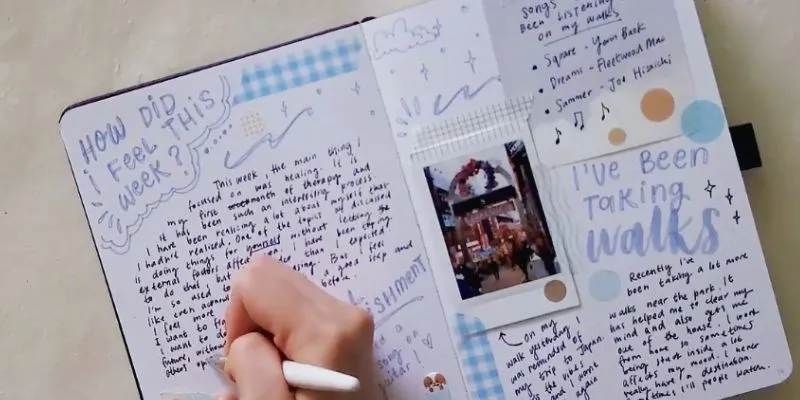 HOW DID
I FEEL THIS
WEEK?
This week the main thing I
focused on was healing. It is
my first month of therapy and
it has been such an interesting process
I have been realizing a lot about myself that
I hadn't realised. One of the topics I discussed
is doing things for yourself without letting the
external factors affect you. I have been trying
to do that, but harder than I expected
I'm so used to
like even
I feel more a good step and
I want to before.
I want to do
future, without
others
on
guitar!
songs
been listening
on my walks
• Square - Yerin Baek
• Dreams - Fleetwood Mac
• Summer - Joe Hisaishi
I'VE BEEN
TAKING
walks
Recently I've
been taking a lot more
walks near the park. It
has helped me to clear my
mind and also gets me
out of the house. I work
from home so sometimes
being stuck inside a lot
affects my mood. I never
really have a destination.
I'll people watch.
on my
walk yesterday I
was reminded of
my trip to Japan.
the vibes
and I want
again